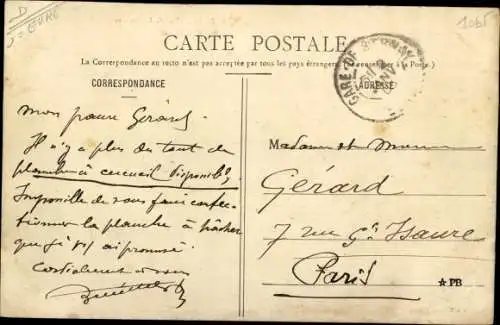 CARTE POSTALE
La Correspondance au recto n'est pas acceptée par tous les pays étrangers. (Se renseigner à la Poste.)
CORRESPONDANCE
ADRESSE
GARE DE
Mon pauvre Gérard
Il n'y a plus du tout de
planches à cercueil disponibles
Impossible de vous faire confec-
tionner la planche à hâcher
que je vs ai promise
Cordialement à vous
Madame et Monsieur
Gérard
7 rue Gt Isaure
Paris
★ PB